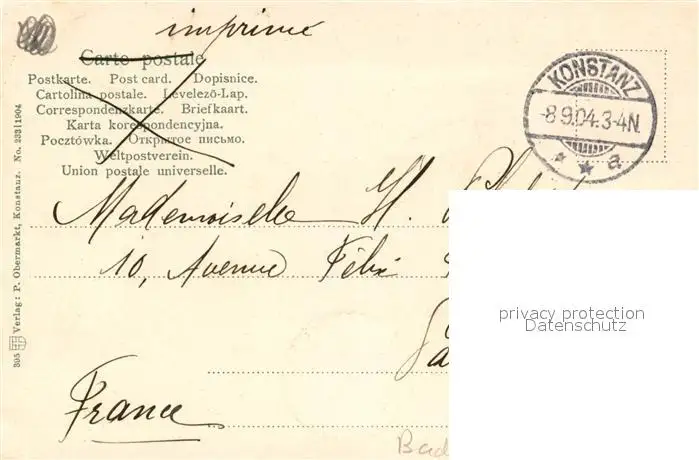 imprimé
Carte postale
Postkarte. Post card. Dopisnice.
Cartolina postale. Levelező-Lap.
Correspondenzkarte. Briefkaart.
Karta korespondencyjna.
Pocztówka. Открытое письмо.
Weltpostverein.
Union postale universelle.
KONSTANZ
-8.9.04.3-4N.
* * a
Mademoiselle H.
10, Avenue Félix
France
Bad
privacy protection
Datenschutz
305 Verlag: P. Obermarkt, Konstanz. No. 233|1904